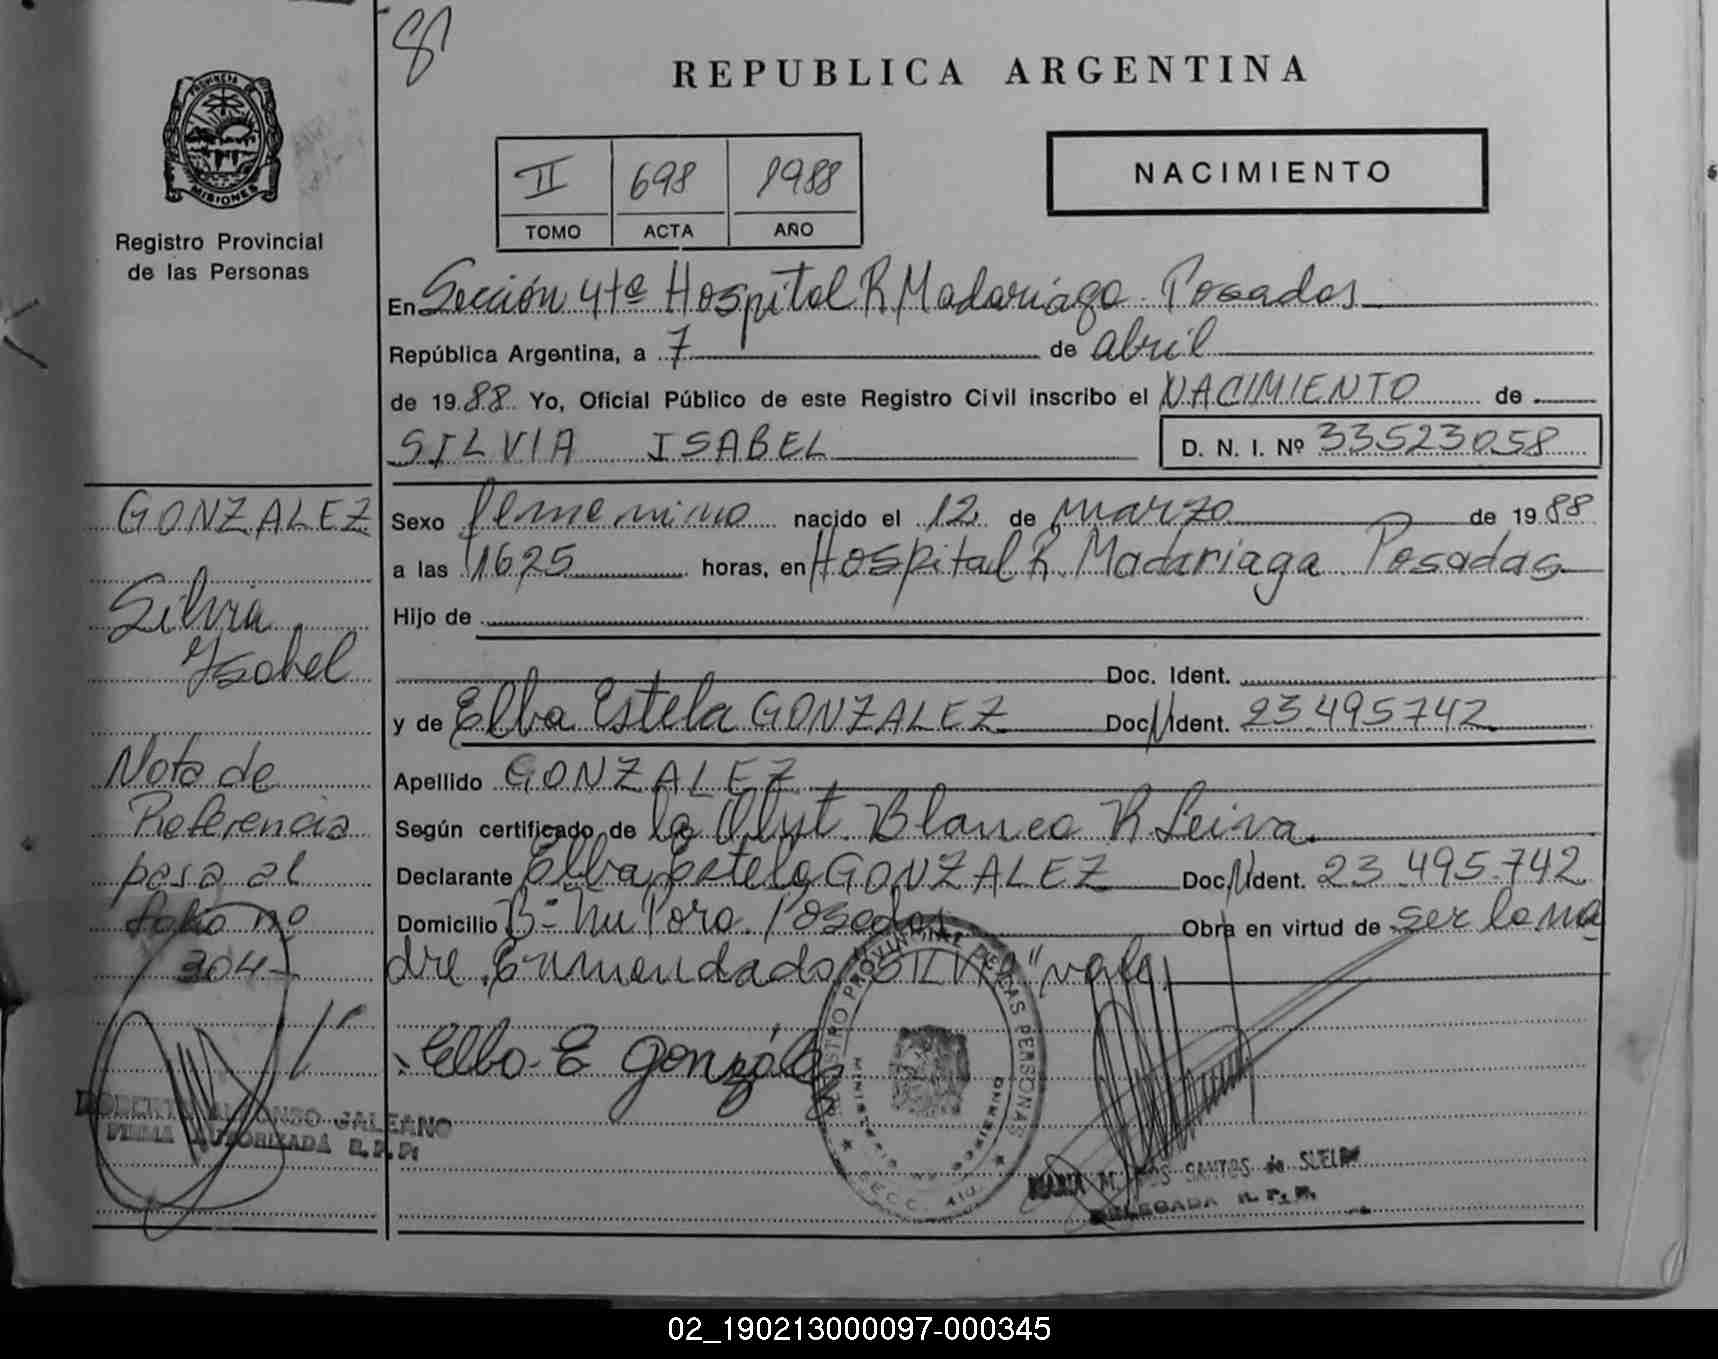 81
PROVINCIA DE
MISIONES
Registro Provincial
de las Personas
REPUBLICA ARGENTINA
II 698 1988
TOMO ACTA AÑO
NACIMIENTO
En Sección 4ta Hospital R Madariaga Posadas
República Argentina, a 7 de abril
de 1988 Yo, Oficial Público de este Registro Civil inscribo el NACIMIENTO de
SILVIA ISABEL D. N. I. Nº 33523058
Sexo femenino nacido el 12 de marzo de 1988
a las 1625 horas, en Hospital R. Madariaga Posadas
Hijo de
Doc. Ident.
y de Elba Estela GONZALEZ Doc N Ident. 23495742
Apellido GONZALEZ
Según certificado de la Blanca R Leiva.
Declarante Elba Estela GONZALEZ Doc N Ident. 23.495.742
Domicilio Bº Ñu Pora. Posadas Obra en virtud de ser la ma
dre. Enmendado "SILVIA" vale
Elba E González
GONZALEZ
Silvia
Ysabel
Nota de
Referencia
pasa al
folio nº
304
ROBERTO ALFONSO GALEANO
FIRMA AUTORIZADA R. P. P.
REGISTRO PROVINCIAL DE LAS PERSONAS
MINISTERIO DE GOBIERNO
SECC. 4ta
MARIA M. DOS SANTOS de
DELEGADA R. P. P.
02_190213000097-000345